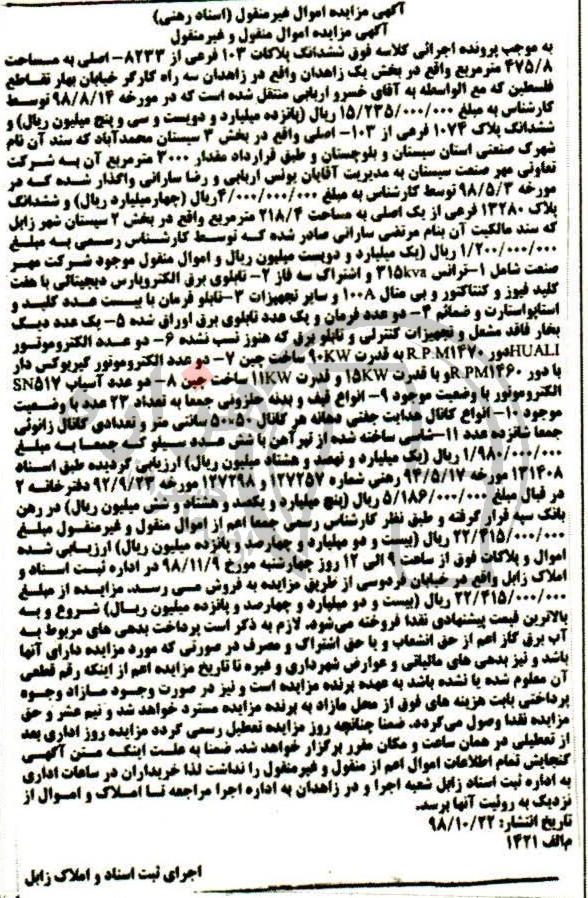 آگهی مزایده اموال غیرمنقول (اسناد رهنی)
آگهی مزایده اموال منقول و غیرمنقول
به موجب پرونده اجرائی کلاسه فوق ششدانگ پلاکات ۱۰۳ فرعی از ۸۲۳۳- اصلی به مساحت
۴۷۵/۸ مترمربع واقع در بخش یک زاهدان واقع در زاهدان سه راه کارگر خیابان بهار تقاطع
فلسطین که مع الواسطه به آقای خسرو اربابی منتقل شده است که در مورخه ۹۸/۸/۱۴ توسط
کارشناس به مبلغ ۱۵/۲۳۵/۰۰۰/۰۰۰ ریال (پانزده میلیارد و دویست و سی و پنج میلیون ریال) و
ششدانگ پلاک ۱۰۷۴ فرعی از ۱۰۳- اصلی واقع در بخش ۳ سیستان محمدآباد که سند آن نام
شهرک صنعتی استان سیستان و بلوچستان و طبق قرارداد مقدار ۳۰۰۰ مترمربع آن به شرکت
تعاونی مهر صنعت سیستان به مدیریت آقایان یونس اربابی و رضا سارانی واگذار شده که در
مورخه ۹۸/۵/۳ توسط کارشناس به مبلغ ۴/۰۰۰/۰۰۰/۰۰۰ ریال (چهارمیلیارد ریال) و ششدانگ
پلاک ۱۳۲۸۰ فرعی از یک اصلی به مساحت ۲۱۸/۴ مترمربع واقع در بخش ۲ سیستان شهر زابل
که سند مالکیت آن بنام مرتضی سارانی صادر شده که توسط کارشناس رسمی به مبلغ
۱/۲۰۰/۰۰۰/۰۰۰ ریال (یک میلیارد و دویست میلیون ریال و اموال منقول موجود شرکت مهر
صنعت شامل ۱-ترانس ۳۱۵kva و اشتراک سه فاز ۲- تابلوی برق الکتروپارس دیجیتالی با هفت
کلید فیوز و کنتاکتور و بی متال ۱۰۰A و سایر تجهیزات ۳-تابلو فرمان با بیست عدد کلید و
استاپ‌استارت و ضمائم ۴- دو عدد فرمان و یک عدد تابلوی برق اوراق شده ۵- یک عدد دیگ
بخار فاقد مشعل و تجهیزات کنترلی و تابلو برق که هنوز نسب نشده ۶- دو عدد الکتروموتور
HUALIدور R.P.M۱۴۷۰ به قدرت ۹۰KW ساخت چین ۷- دو عدد الکتروموتور گیربوکس دار
با دور R.PM۱۴۶۰و با قدرت ۱۵KW و قدرت ۱۱KW ساخت چین ۸- دو عدد آسیاب SN۵۱۷
الکتروموتور با وضعیت موجود ۹- انواع قیف و بدنه حلزونی جمعا به تعداد ۲۳ عدد با وضعیت
موجود ۱۰- انواع کانال هدایت جفتی دهانه هر کانال ۵۰×۵۰ سانتی متر و تعدادی کانال زانوئی
جمعا شانزده عدد ۱۱-شاسی ساخته شده از تیرآهن با شش عدد سیلو که جمعا به مبلغ
۱/۹۸۰/۰۰۰/۰۰۰ ریال (یک میلیارد و نهصد و هشتاد میلیون ریال) ارزیابی گردیده طبق اسناد
۱۳۱۴۰۸ مورخه ۹۴/۵/۱۷ رهنی شماره ۱۲۷۲۵۷ و ۱۲۷۲۹۸ مورخه ۹۲/۹/۲۳ دفترخانه ۲
در قبال مبلغ ۵/۱۸۶/۰۰۰/۰۰۰ ریال (پنج میلیارد و یکصد و هشتاد و شش میلیون ریال) در رهن
بانک سپه قرار گرفته و طبق نظر کارشناس رسمی جمعا اعم از اموال منقول و غیرمنقول مبلغ
۲۲/۴۱۵/۰۰۰/۰۰۰ ریال (بیست و دو میلیارد و چهارصد و پانزده میلیون ریال) ارزیابی شده
اموال و پلاکات فوق از ساعت ۹ الی ۱۲ روز چهارشنبه مورخ ۹۸/۱۱/۹ در اداره ثبت اسناد و
املاک زابل واقع در خیابان فردوسی از طریق مزایده به فروش می رسد. مزایده از مبلغ
۲۲/۴۱۵/۰۰۰/۰۰۰ ریال (بیست و دو میلیارد و چهارصد و پانزده میلیون ریال) شروع و به
بالاترین قیمت پیشنهادی نقدا فروخته می‌شود. لازم به ذکر است پرداخت بدهی های مربوط به
آب برق گاز اعم از حق انشعاب و یا حق اشتراک و مصرف در صورتی که مورد مزایده دارای آنها
باشد و نیز بدهی های مالیاتی و عوارض شهرداری و غیره تا تاریخ مزایده اعم از اینکه رقم قطعی
آن معلوم شده یا نشده باشد به عهده برنده مزایده است و نیز در صورت وجود مازاد وجوه
پرداختی بابت هزینه های فوق از محل مازاد به برنده مزایده مسترد خواهد شد و نیم عشر و حق
مزایده نقدا وصول می‌گردد. ضمنا چنانچه روز مزایده تعطیل رسمی گردد مزایده روز اداری بعد
از تعطیلی در همان ساعت و مکان مقرر برگزار خواهد شد. ضمنا به علت اینکه متن آگهی
گنجایش تمام اطلاعات اموال اعم از منقول و غیرمنقول را نداشت لذا خریداران در ساعات اداری
به اداره ثبت اسناد زابل شعبه اجرا و در زاهدان به اداره اجرا مراجعه تا املاک و اموال از
نزدیک به روئیت آنها برسد.
تاریخ انتشار: ۹۸/۱۰/۲۲
م‌الف ۱۴۲۱
اجرای ثبت اسناد و املاک زابل